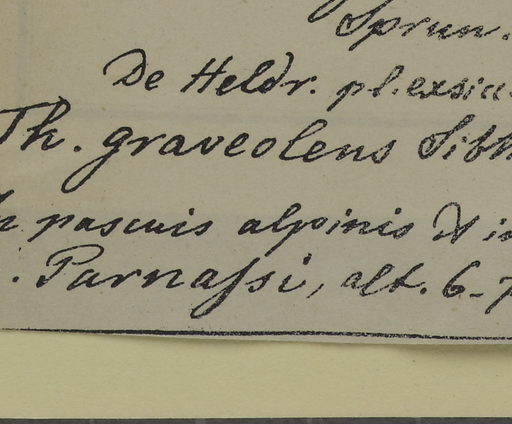 Sprun.
De Heldr. pl. exsicc.
Th. graveolens Sibth
In pascuis alpinis
. Parnassi, alt. 6-7